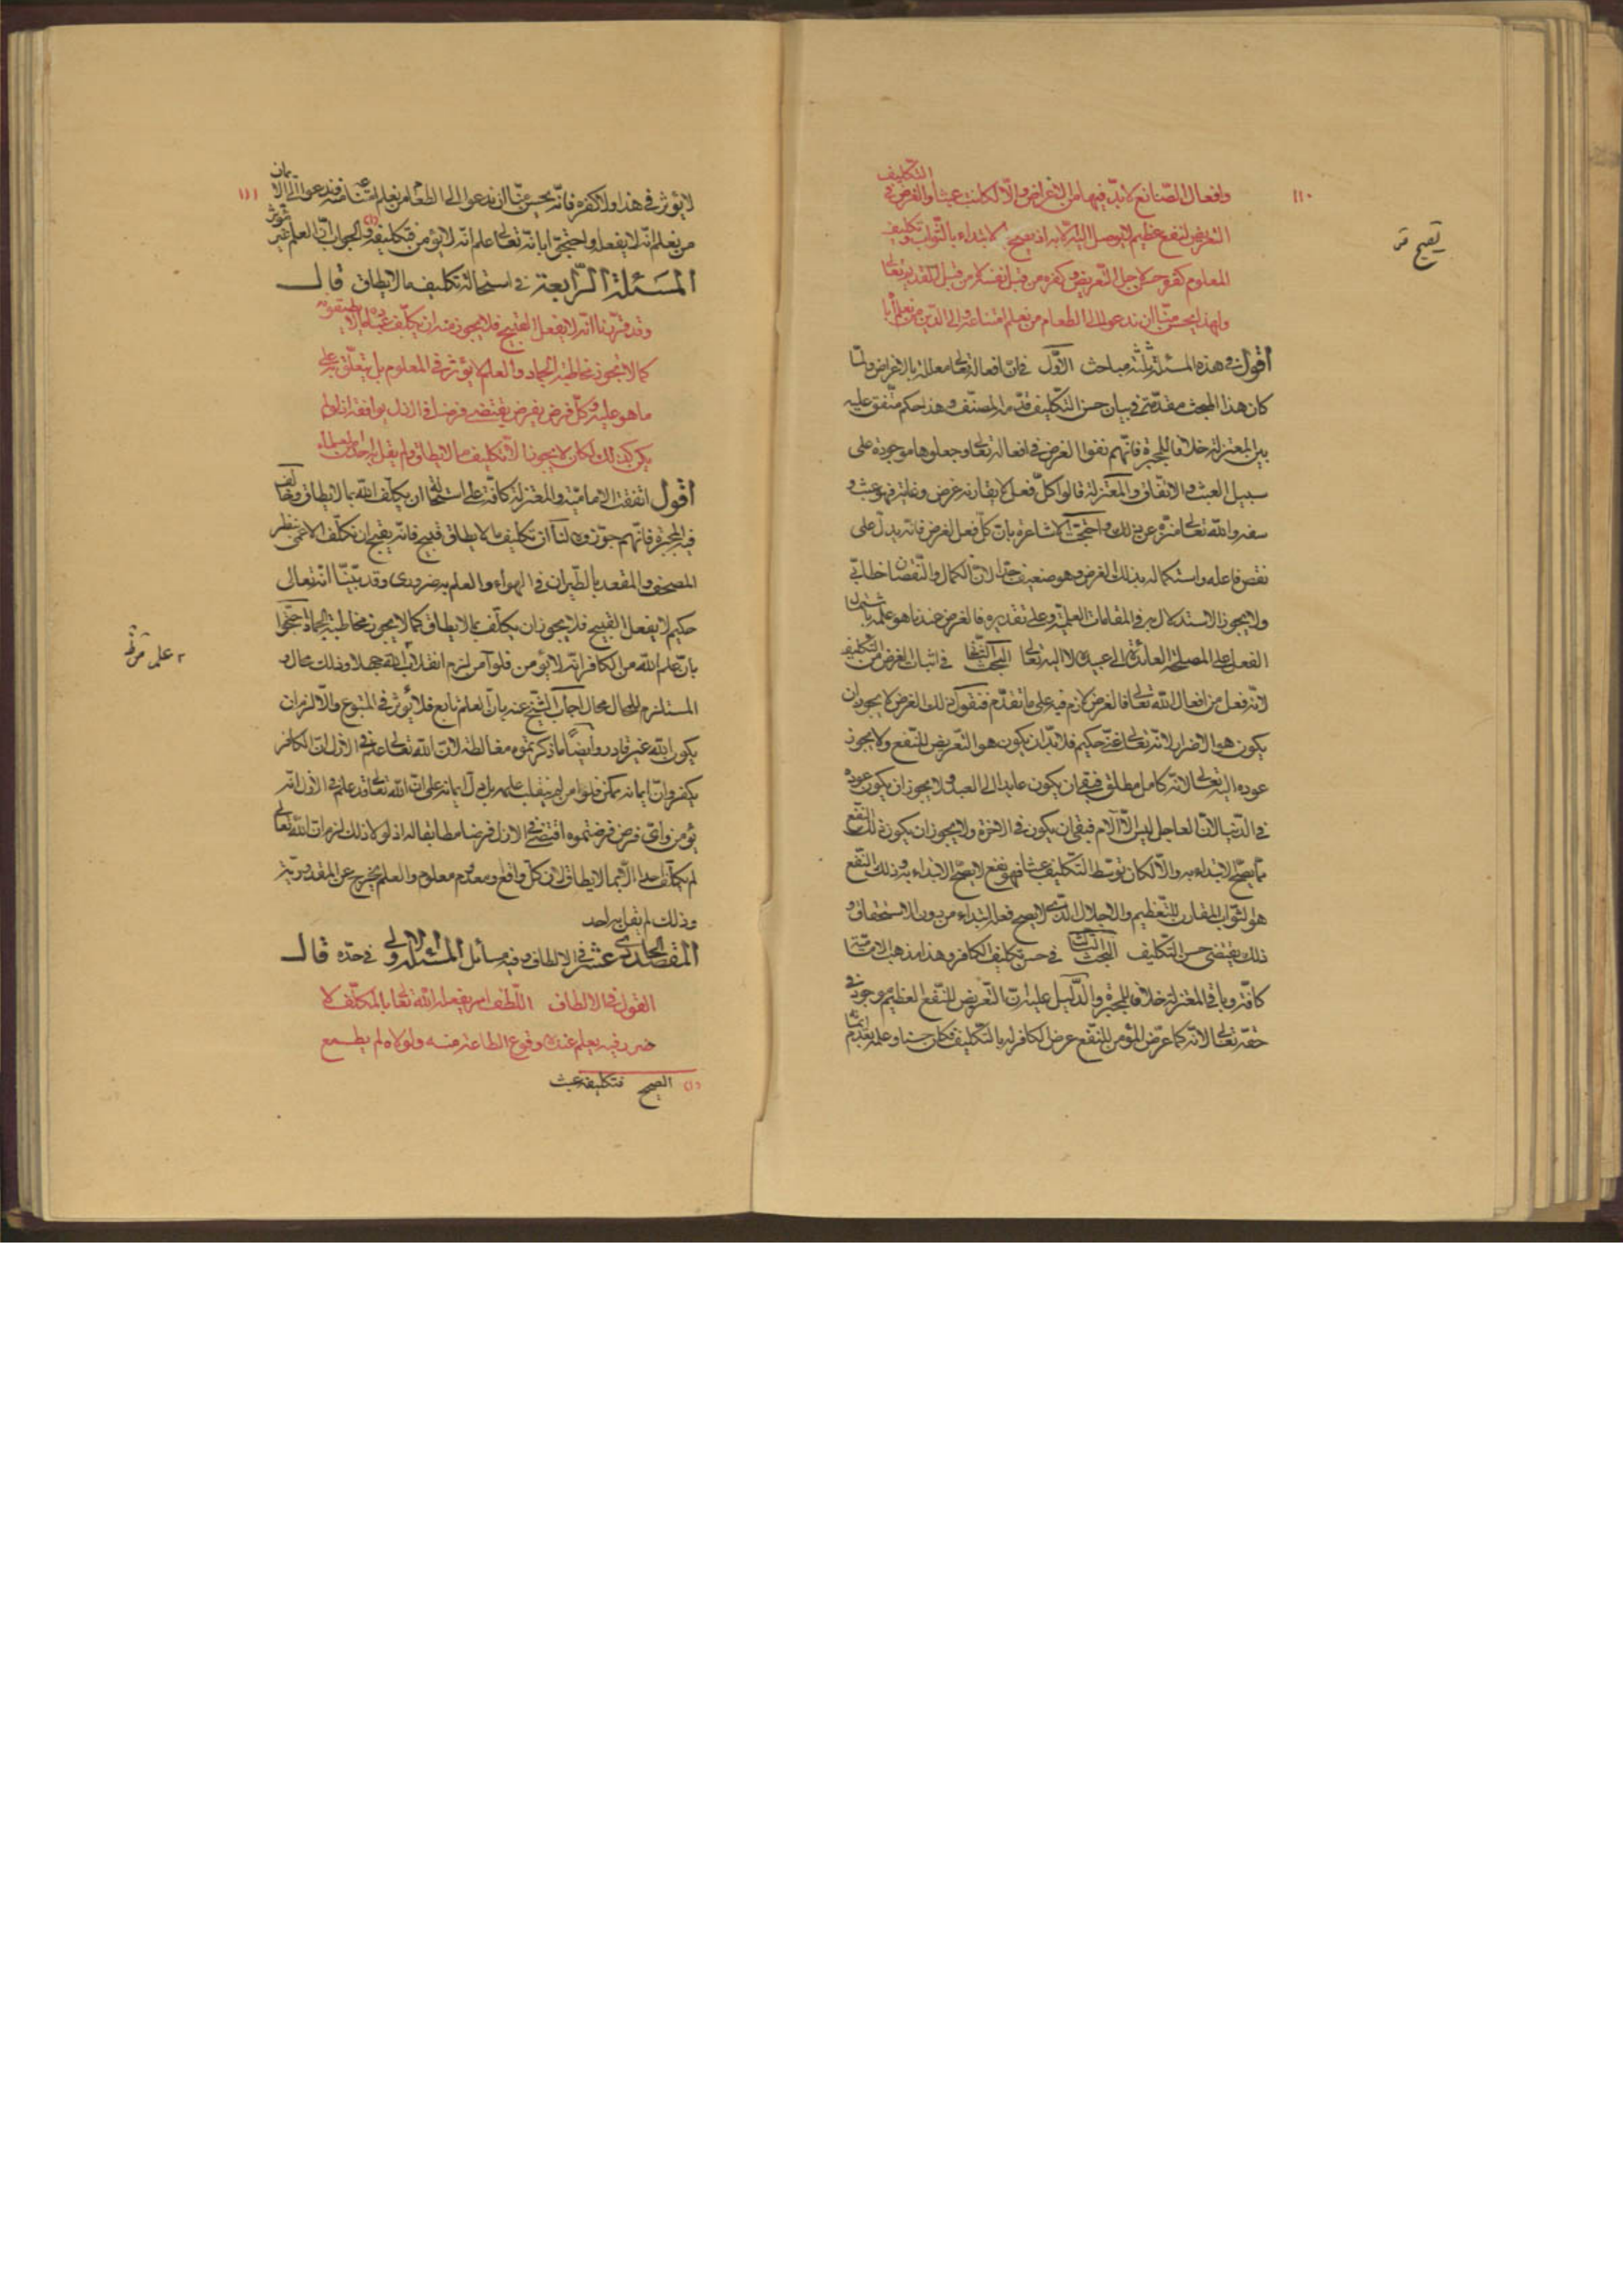 ١١٠
وافعال الصّانع لا بدّ فيها من الاغراض والّا لكانت عبثا والغرض في التّكليف
التعريض لنفع عظيم لا يوصل اليه الّا به اذ يقبح الابتداء بالثّواب وتكليف
المعلوم كفره حسن لاجل التّعريض وكفره من قبل نفسه لا من قبل القديم تعالى
ولهذا يحسن منّا ان ندعو الى الطعام من نعلم امتناعه والى الدّين من نعلم اباه
يقبح
اقول في هذه المسئلة ثلثة مباحث الاوّل في انّ افعاله تعالى معللة بالاغراض ولمّا
كان هذا المبحث مقدّمة في بيان حسن التّكليف قدّمه المصنّف وهذا حكم متّفق عليه
بين المعتزلة خلافا للمجبرة فانّهم نفوا الغرض في افعاله تعالى وجعلوها موجودة على
سبيل العبث والاتفاق والمعتزلة قالوا كلّ فعل لا يقارنه غرض وغاية فهو عبث و
سفه والله تعالى منزّه عن ذلك واحتجّت الاشاعرة بانّ كلّ فعل لغرض فانّه يدلّ على
نقص فاعله واستكماله بذلك الغرض وهو ضعيف جدّا لانّ الكمال والنّقصان خطابيّ
ولا يجوز الاستدلال به في المقامات العلميّة وعلى تقديره فالغرض عندنا هو علمه باشتمال
الفعل على المصلحة العائدة الى عبيده لا اليه تعالى البحث الثّانی في اثبات الغرض من التّكليف
لانّه فعل من افعال الله تعالى فالغرض لازم فيه على ما تقدّم فنقول ذلك الغرض لا يجوز ان
يكون هو الاضرار لانّه تعالى غنيّ حكيم فلا بدّ ان يكون هو التّعريض للنّفع ولا يجوز
عوده اليه تعالى لانّه كامل مطلق فبقي ان يكون عايدا الى العبد ولا يجوز ان يكون عوده
في الدّنيا لانّ العاجل ليس الّا الآلام فبقي ان يكون في الاخرة ولا يجوز ان يكون ذلك النّفع
ممّا يصحّ الابتداء به والّا لكان توسّط التّكليف عبثا فهو نفع لا يصحّ الابتداء به وذلك النّفع
هو الثّواب المقارن للتّعظيم والاجلال الّذي لا يصح فعله ابتداء من دون الاستحقاق و
ذلك يقتضي حسن التّكليف البحث الثّالث في حسن تكليف الكافر وهذا مذهب الاماميّة
كافّة وباقي المعتزلة خلافا للمجبرة والدّليل عليه انّ التّعريض للنّفع العظيم موجود في
حقّه تعالى لانّه كما عرّض المؤمن للنّفع عرض الكافر له بالتّكليف فكان حسنا وعلمه بعدم ايمانه
١١١
لا يؤثر في هذا ولا كفره فانّه يحسن منّا ان ندعو الى الطعام من نعلم امتناعه منه وندعو الى الايمان
من نعلم انّه لا يفعله واحتجّوا بانّه تعالى علم انّه لا يؤمن فتكليفه (١) والجواب انّ العلم غير مؤثر
المسئلة الرّابعة في استحالة تكليف ما لا يطاق قال
وقد قرّرنا انّه لا يفعل القبيح فلا يجوز منه ان يكلّف عبده ما لا يطيقونه
كما لا يجوز مخاطبة الجماد والعلم لا يؤثر في المعلوم بل يتعلّق به على
ما هو عليه وكلّ فرض يفرض يقتضي فرضا في الازل يوافقه اذ لو لم
يكن كذلك لكان لا يجوز الّا تكليف ما لا يطاق ولم يقل به احد من العلماء
اقول اتفقت الاماميّة والمعتزلة كافّة على استحالة ان يكلّف الله بما لا يطاق وخالف
فيه المجبرة فانّهم جوّزوه لنا ان تكليف ما لا يطاق قبيح فانّه يقبح ان نكلّف الاعمى بنظر
المصحف والمقعد بالطّيران في الهواء والعلم به ضروري وقد بيّنّا انّه تعالى
حكيم لا يفعل القبيح فلا يجوز ان يكلّف بما لا يطاق كما لا يجوز مخاطبة الجماد احتجّوا
بانّ علم الله من الكافر انّه لا يؤمن فلو آمن لزم انقلاب الله جهلا وذلك محال و
٢ علم
المستلزم للمحال محال اجاب الشّيخ عنه بانّ العلم تابع فلا يؤثر في المتبوع والّا لزم ان
يكون الله غير قادر وايضًا ما ذكرتموه مغالطة لانّ الله تعالى علم في الازل انّ الكافر
يكفر وانّ ايمانه ممكن فلو امن لم ينقلب علمه بل دلّ ايمانه على انّ الله تعالى قد علم في الازل انّه
يؤمن وايّ فرض فرضتموه اقتضى في الازل فرضا مطابقا له اذ لولا ذلك لزم ان الله تعالى
لم يكلّف احدا الّا بما لا يطاق لانّ كلّ واقع ومعدوم معلوم والعلم يخرج عن المقدوريّة
وذلك لم يقل به احد
المقصد الحادي عشر في الالطاف وفيه مسائل المسئلة الاولى في حدّه قال
القول في الالطاف اللّطف امر يفعله الله تعالى بالمكلّف لا
ضرر فيه يعلم عنده وقوع الطاعة منه ولولاه لم يطع
(١) الصح فتكليفه عبث